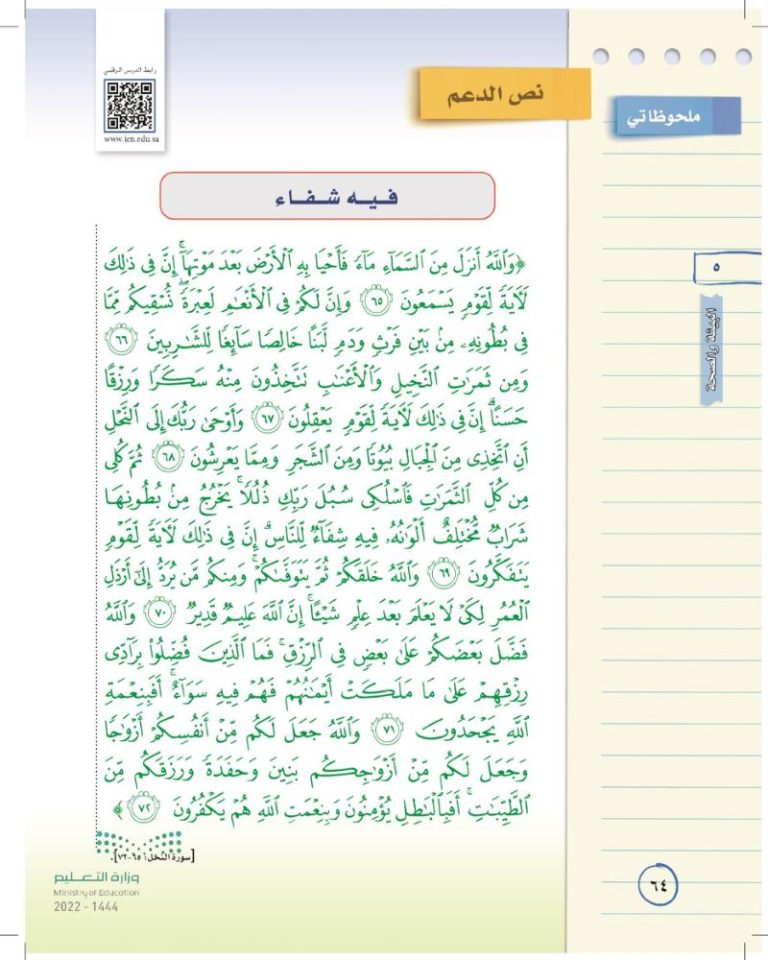 رابط الدرس الرقمي
www.ien.edu.sa
نص الدعم
ملحوظاتي
فيه شفاء
﴿وَاللَّهُ أَنزَلَ مِنَ السَّمَاءِ مَاءً فَأَحْيَا بِهِ الْأَرْضَ بَعْدَ مَوْتِهَا ۚ إِنَّ فِي ذَٰلِكَ
لَآيَةً لِّقَوْمٍ يَسْمَعُونَ ٦٥ وَإِنَّ لَكُمْ فِي الْأَنْعَامِ لَعِبْرَةً ۖ نُّسْقِيكُم مِّمَّا
فِي بُطُونِهِ مِن بَيْنِ فَرْثٍ وَدَمٍ لَّبَنًا خَالِصًا سَائِغًا لِّلشَّارِبِينَ ٦٦
وَمِن ثَمَرَاتِ النَّخِيلِ وَالْأَعْنَابِ تَتَّخِذُونَ مِنْهُ سَكَرًا وَرِزْقًا
حَسَنًا ۗ إِنَّ فِي ذَٰلِكَ لَآيَةً لِّقَوْمٍ يَعْقِلُونَ ٦٧ وَأَوْحَىٰ رَبُّكَ إِلَى النَّحْلِ
أَنِ اتَّخِذِي مِنَ الْجِبَالِ بُيُوتًا وَمِنَ الشَّجَرِ وَمِمَّا يَعْرِشُونَ ٦٨ ثُمَّ كُلِي
مِن كُلِّ الثَّمَرَاتِ فَاسْلُكِي سُبُلَ رَبِّكِ ذُلُلًا ۚ يَخْرُجُ مِن بُطُونِهَا
شَرَابٌ مُّخْتَلِفٌ أَلْوَانُهُ فِيهِ شِفَاءٌ لِّلنَّاسِ ۗ إِنَّ فِي ذَٰلِكَ لَآيَةً لِّقَوْمٍ
يَتَفَكَّرُونَ ٦٩ وَاللَّهُ خَلَقَكُمْ ثُمَّ يَتَوَفَّاكُمْ ۚ وَمِنكُم مَّن يُرَدُّ إِلَىٰ أَرْذَلِ
الْعُمُرِ لِكَيْ لَا يَعْلَمَ بَعْدَ عِلْمٍ شَيْئًا ۚ إِنَّ اللَّهَ عَلِيمٌ قَدِيرٌ ٧٠ وَاللَّهُ
فَضَّلَ بَعْضَكُمْ عَلَىٰ بَعْضٍ فِي الرِّزْقِ ۚ فَمَا الَّذِينَ فُضِّلُوا بِرَادِّي
رِزْقِهِمْ عَلَىٰ مَا مَلَكَتْ أَيْمَانُهُمْ فَهُمْ فِيهِ سَوَاءٌ ۚ أَفَبِنِعْمَةِ
اللَّهِ يَجْحَدُونَ ٧١ وَاللَّهُ جَعَلَ لَكُم مِّنْ أَنفُسِكُمْ أَزْوَاجًا
وَجَعَلَ لَكُم مِّنْ أَزْوَاجِكُم بَنِينَ وَحَفَدَةً وَرَزَقَكُم مِّنَ
الطَّيِّبَاتِ ۚ أَفَبِالْبَاطِلِ يُؤْمِنُونَ وَبِنِعْمَتِ اللَّهِ هُمْ يَكْفُرُونَ ٧٢﴾
[سورة النحل: ٦٥-٧٢].
٥
البيئة والصحة
وزارة التعليم
Ministry of Education
2022 - 1444
٦٤